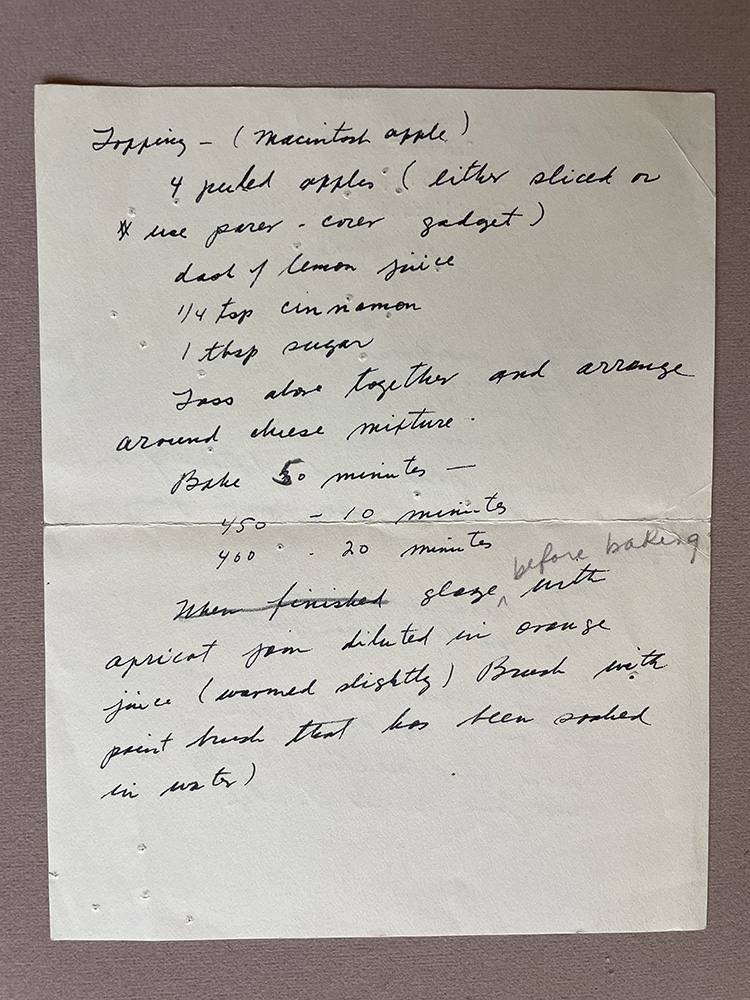 Topping - (Macintosh apple)
4 peeled apples (either sliced or
* use parer - corer gadget)
dash of lemon juice
1/4 tsp cinnamon
1 tbsp sugar
Toss above together and arrange
around cheese mixture.
Bake 50 minutes —
450 - 10 minutes
400 - 20 minutes
before baking
When finished glaze ^ with
apricot jam diluted in orange
juice (warmed slightly) Brush with
paint brush that has been soaked
in water)